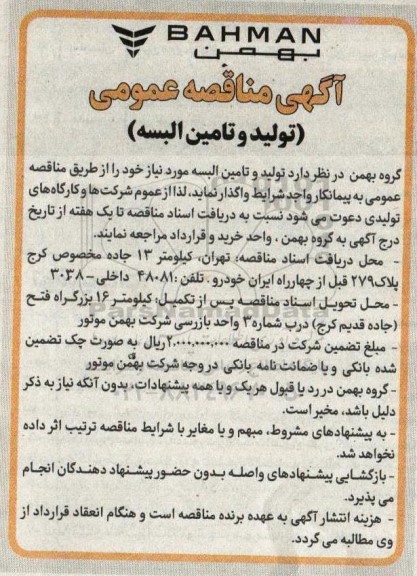 BAHMAN
بهمن
آگهی مناقصه عمومی
(تولید و تامین البسه)
گروه بهمن در نظر دارد تولید و تامین البسه مورد نیاز خود را از طریق مناقصه
عمومی به پیمانکار واجد شرایط واگذار نماید، لذا از عموم شرکت‌ها و کارگاه‌های
تولیدی دعوت می شود نسبت به دریافت اسناد مناقصه تا یک هفته از تاریخ
درج آگهی به گروه بهمن ، واحد خرید و قرارداد مراجعه نمایند.
- محل دریافت اسناد مناقصه: تهران، کیلومتر ۱۳ جاده مخصوص کرج
پلاک۲۷۹ قبل از چهارراه ایران خودرو . تلفن :۴۸۰۸۱ داخلی- ۳۰۳۸
- محل تحویل اسناد مناقصه پس از تکمیل: کیلومتر ۱۶ بزرگراه فتح
(جاده قدیم کرج) درب شماره۳ واحد بازرسی شرکت بهمن موتور
- مبلغ تضمین شرکت در مناقصه ۲.۰۰۰.۰۰۰.۰۰۰ریال به صورت چک تضمین
شده بانکی و یا ضمانت نامه بانکی در وجه شرکت بهمن موتور
- گروه بهمن در رد یا قبول هر یک و یا همه پشنهادات، بدون آنکه نیاز به ذکر
دلیل باشد، مخیر است.
- به پیشنهادهای مشروط، مبهم و یا مغایر با شرایط مناقصه ترتیب اثر داده
نخواهد شد.
- بازگشایی پیشنهادهای واصله بدون حضور پیشنهاد دهندگان انجام
می پذیرد.
- هزینه انتشار آگهی به عهده برنده مناقصه است و هنگام انعقاد قرارداد از
وی مطالبه می گردد.